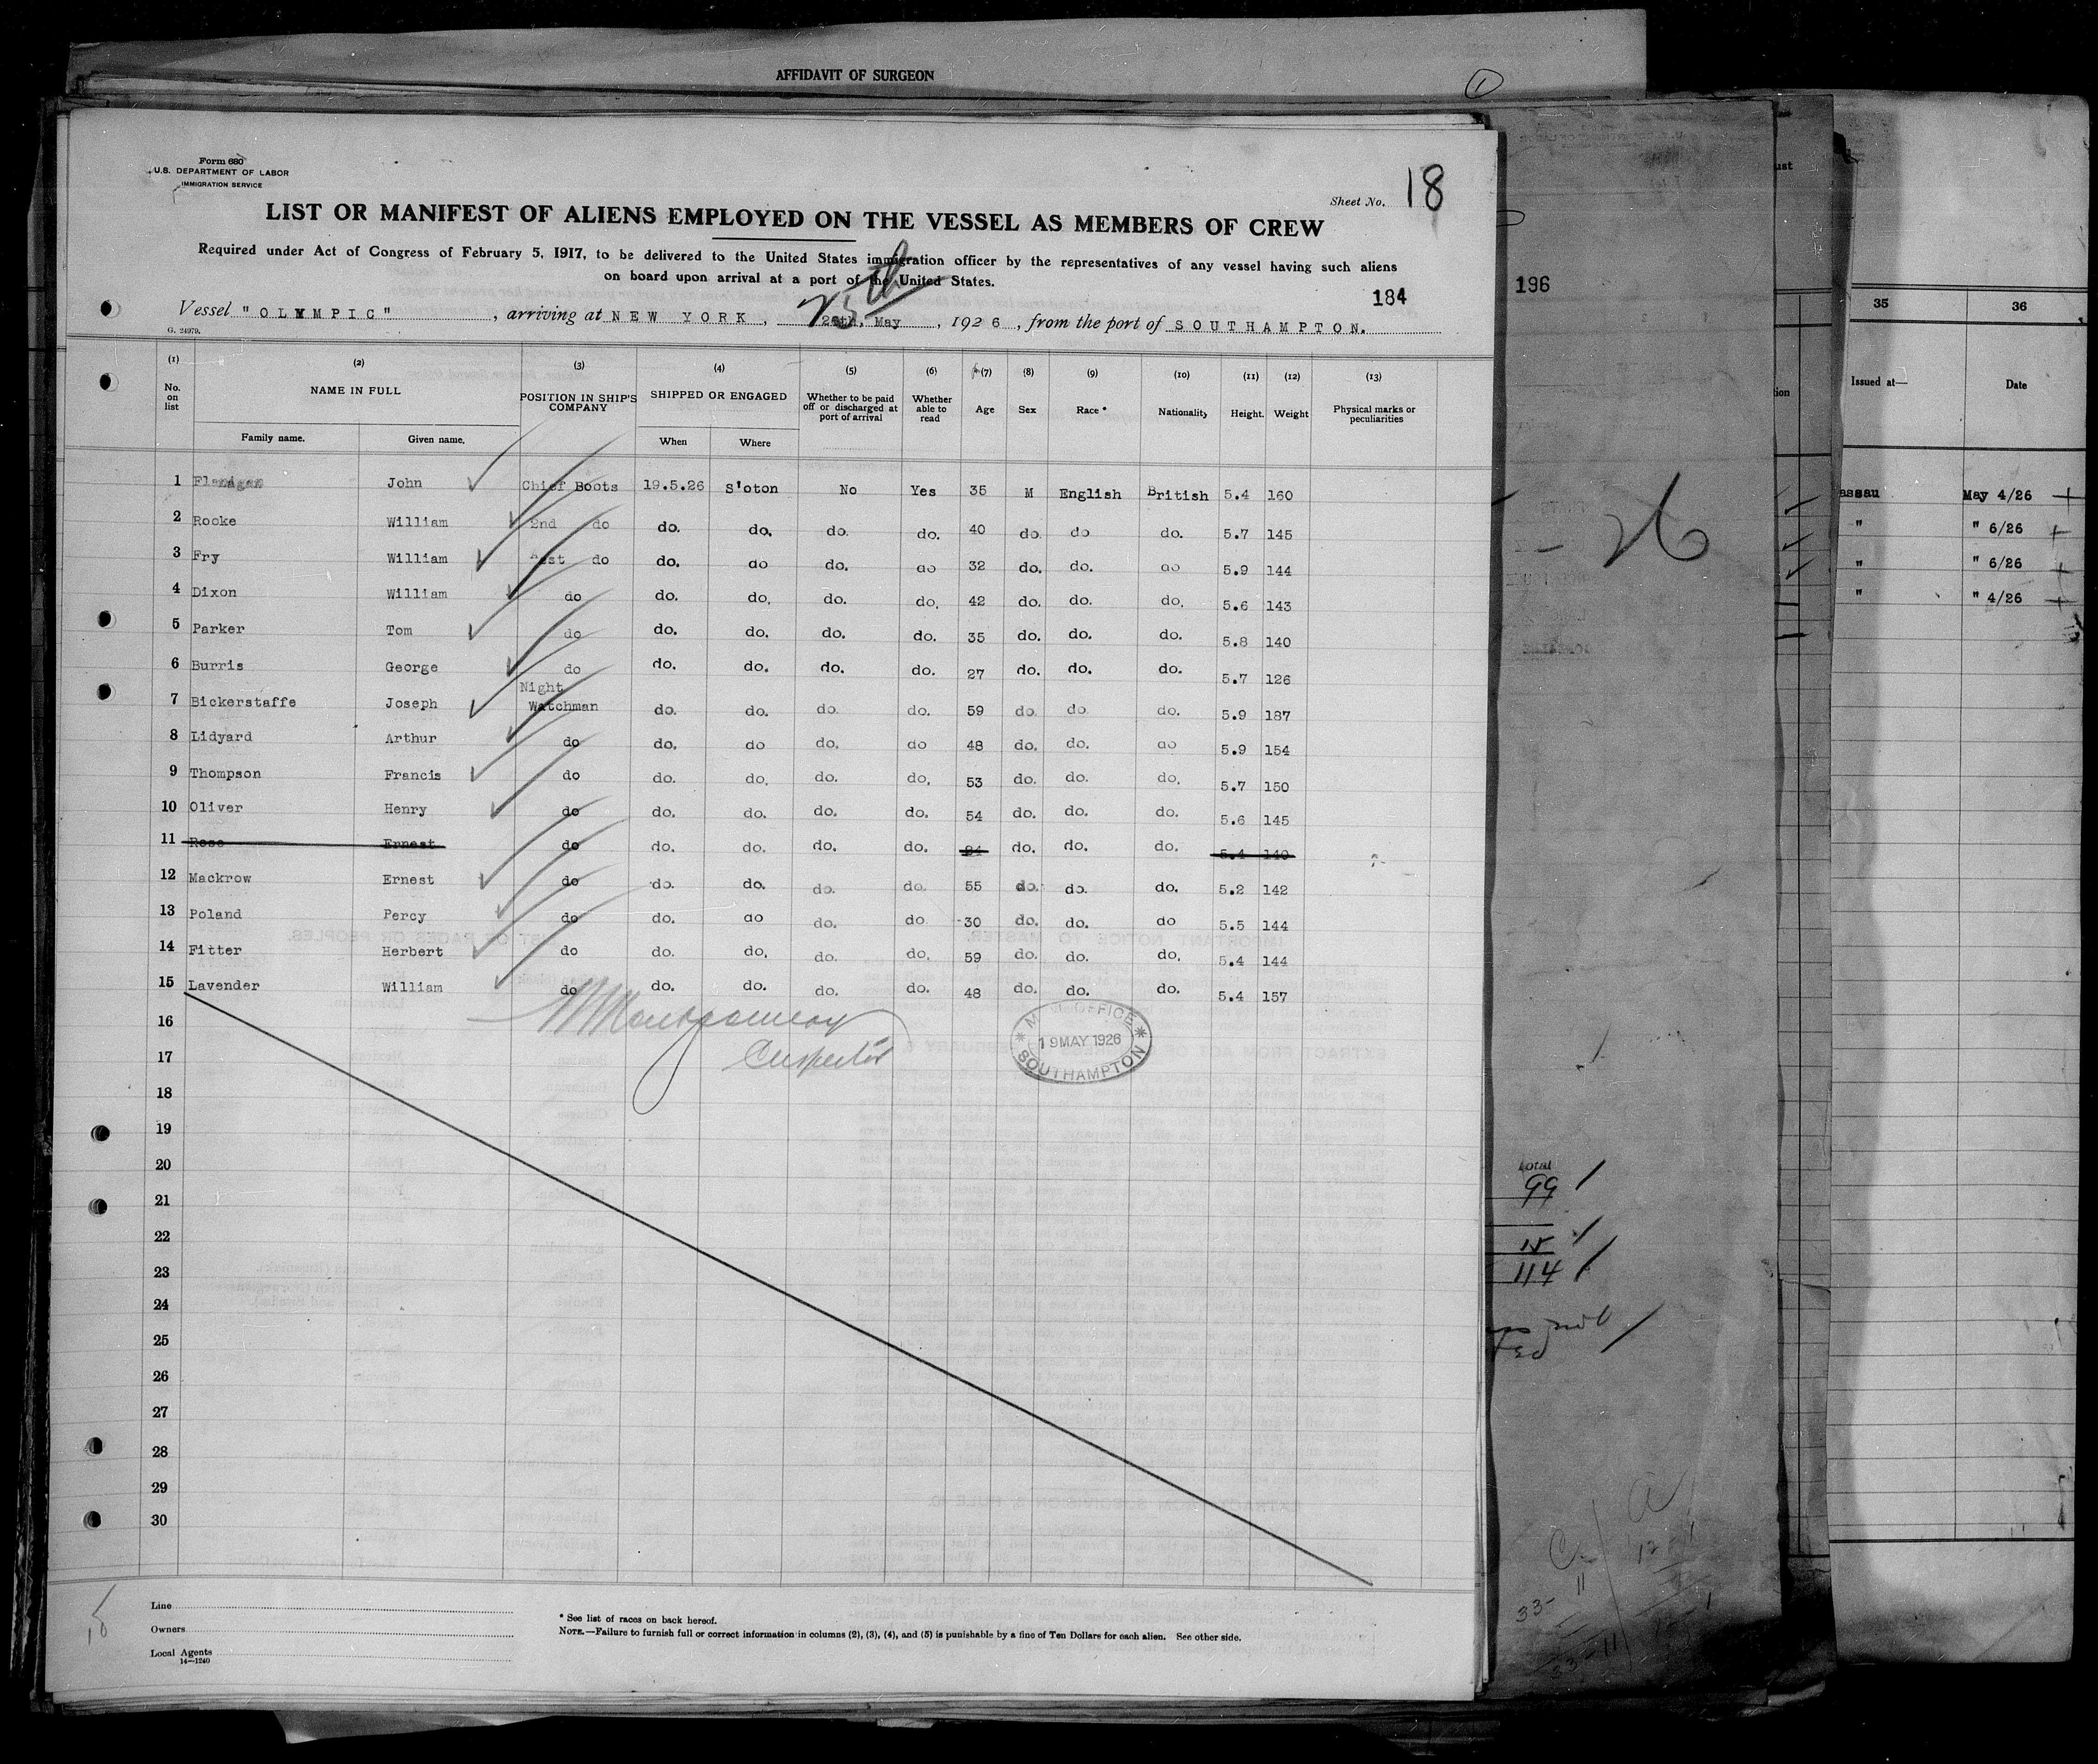 AFFIDAVIT OF SURGEON
1
Form 680
U.S. DEPARTMENT OF LABOR
IMMIGRATION SERVICE
Sheet No. 18
LIST OR MANIFEST OF ALIENS EMPLOYED ON THE VESSEL AS MEMBERS OF CREW
Required under Act of Congress of February 5, 1917, to be delivered to the United States immigration officer by the representatives of any vessel having such aliens
on board upon arrival at a port of the United States.
184
25th
Vessel "OLYMPIC", arriving at NEW YORK, 26th, May, 1926, from the port of SOUTHAMPTON.
G. 24979.
(1) (2) (3) (4) (5) (6) (7) (8) (9) (10) (11) (12) (13)
No. on list NAME IN FULL POSITION IN SHIP'S COMPANY SHIPPED OR ENGAGED Whether to be paid off or discharged at port of arrival Whether able to read Age Sex Race * Nationality Height. Weight Physical marks or peculiarities
Family name. Given name. When Where
1 Flanigan John Chief Boots 19.5.26 S'oton No Yes 35 M English British 5.4 160
2 Rooke William 2nd do do. do. do. do. 40 do. do do. 5.7 145
3 Fry William Asst do do. do do. do 32 do. do. do 5.9 144
4 Dixon William do do. do. do. do. 42 do. do. do. 5.6 143
5 Parker Tom do do. do. do. do. 35 do. do. do. 5.8 140
6 Burris George do do. do. do. do. 27 do. do. do. 5.7 126
7 Bickerstaffe Joseph Night Watchman do. do. do. do. 59 do. do. do. 5.9 187
8 Lidyard Arthur do do. do do. do 48 do. do. do 5.9 154
9 Thompson Francis do do. do. do. do. 53 do. do. do. 5.7 150
10 Oliver Henry do do. do. do. do. 54 do. do. do. 5.6 145
11 Rose Ernest do do. do. do. do. do. do. do. 5.4 140
12 Mackrow Ernest do do. do. do. do. 55 do. do. do. 5.2 142
13 Poland Percy do do. do do. do 30 do. do. do 5.5 144
14 Fitter Herbert do do. do. do. do. 59 do. do. do. 5.4 144
15 Lavender William do do. do. do. do. 48 do. do. do. 5.4 157
16
17
18
19
20
21
22
23
24
25
26
27
28
29
30
Montgomery
Inspector
OFFICE
19 MAY 1926
SOUTHAMPTON
Line
Owners
Local Agents
14—1240
* See list of races on back hereof.
NOTE.—Failure to furnish full or correct information in columns (2), (3), (4), and (5) is punishable by a fine of Ten Dollars for each alien. See other side.
196
26
Total
99
15
114
35 36
Issued at— Date
assau May 4/26
" " 6/26
" " 6/26
" " 4/26